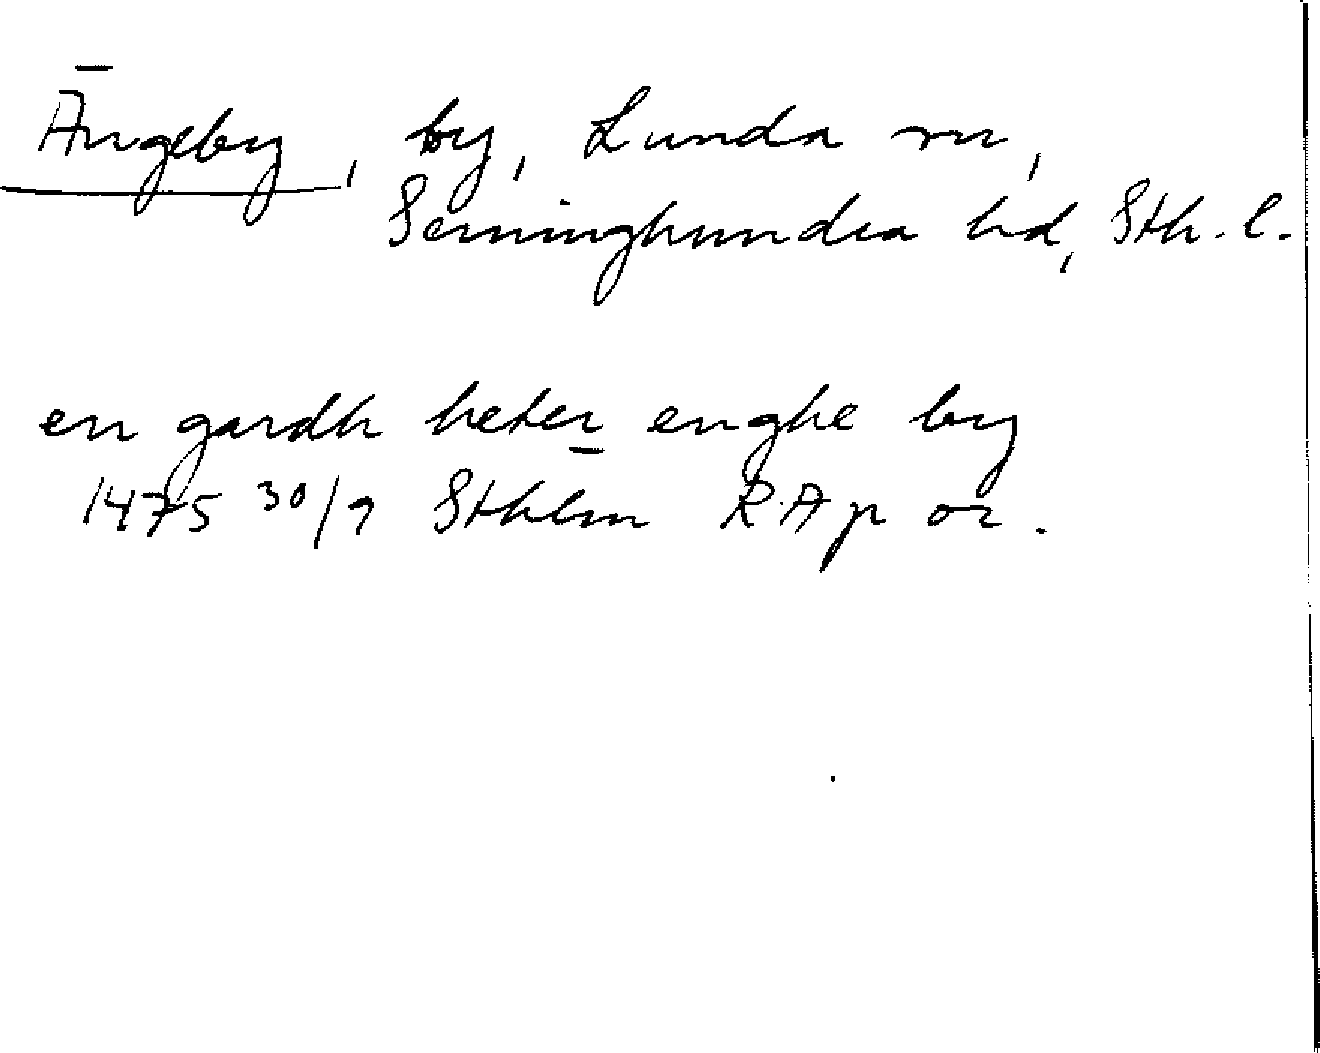 Ängeby, by, Lunda sn,
Seminghundra hd, Sth. l.
en gardh heter enghe by
1475 30/9 Sthlm RAp or.